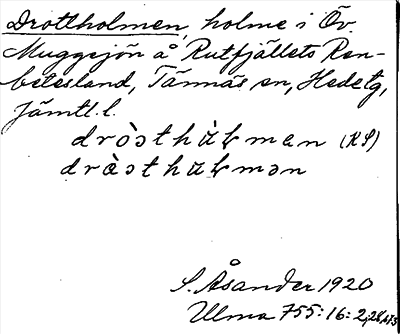 Drottholmen, holme i Öv.
Muggsjön å Rutfjällets Ren-
betesland, Tännäs sn, Hede tg,
Jämtl. l.
dròsthàƚman (RS)
dràsthàƚmən
S. Åsander 1920
Ulma 755:16:2,28